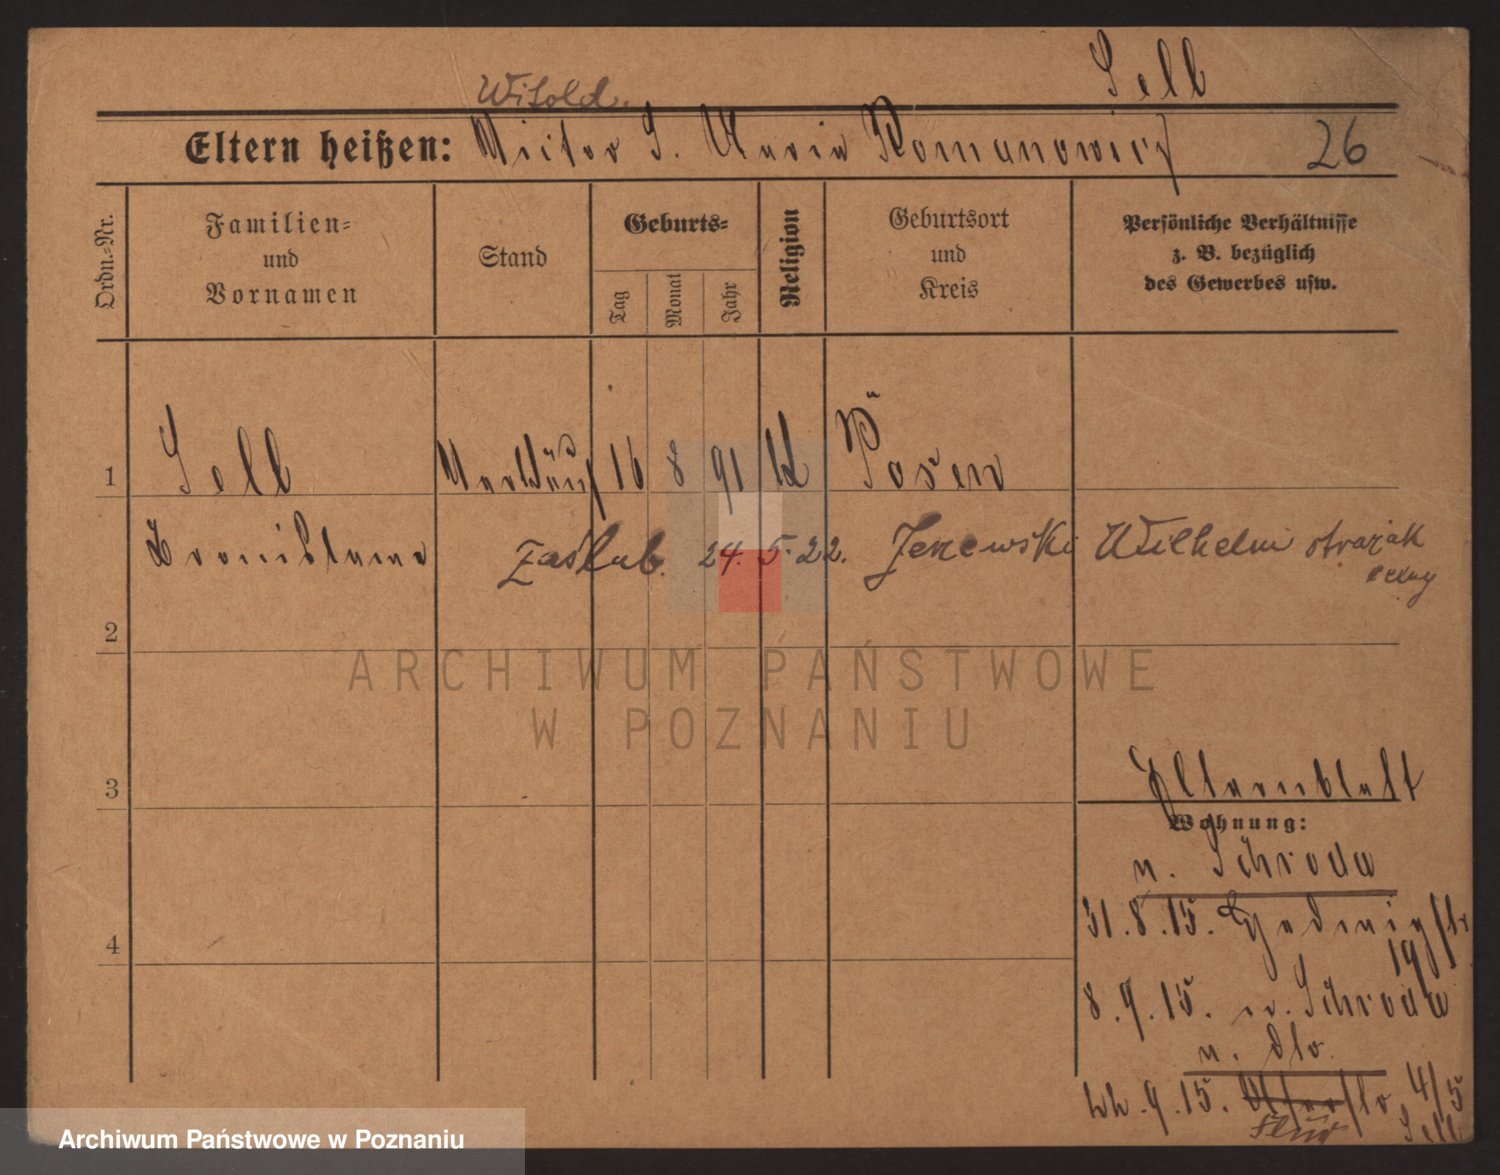 Sell
Witold.
Eltern heißen: Victor S. Maria Romanowicz
26
Ordn.-Nr.
Familien-
und
Vornamen
Stand
Geburts-
Tag
Monat
Jahr
Religion
Geburtsort
und
Kreis
Persönliche Verhältnisse
z. B. bezüglich
des Gewerbes usw.
1 Sell 16 8 91 Posen
Bronislawa zaślub. 24. 5. 22. Jezewski Wilhelm strażak
2
ARCHIWUM PAŃSTWOWE
W POZNANIU
3
Elternblatt
Wohnung:
n. Schroda
31.8.15.
19
4
8.9.15. v. Schroda
n. dto
.9.15. 4/5
Sell
Archiwum Państwowe w Poznaniu